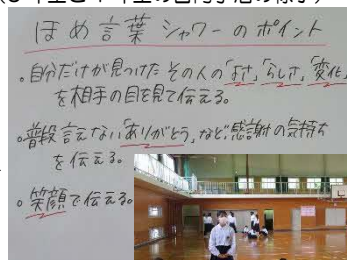 ほめ言葉シャワーのポイント
。自分だけが見つけたその人の「よさ」「らしさ」「変化」
を相手の目を見て伝える。
。普段言えない「ありがとう」など、感謝の気持ち
を伝える。
。笑顔で伝える。